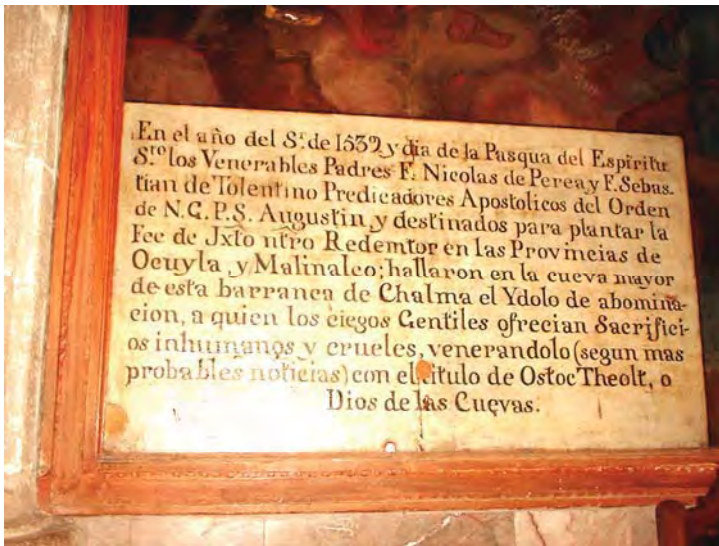 En el año del Sr. de 1539 y dia de la Pasqua del Espiritu
Sto. los Venerables Padres F. Nicolas de Perea y F. Sebas-
tian de Tolentino Predicadores Apostolicos del Orden
de N.G.P.S. Augustin y destinados para plantar la
Fee de Jxto ntro Redemtor en las Provincias de
Ocuyla y Malinalco; hallaron en la cueva mayor
de esta barranca de Chalma el Ydolo de abomina-
cion, a quien los ciegos Gentiles ofrecian Sacrifici-
os inhumanos y crueles, venerandolo (segun mas
probables noticias) con el titulo de Ostoc Theolt, o
Dios de las Cuevas.